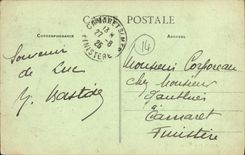 CARTE POSTALE
CORRESPONDANCE
CAMARET S/MER
13 H
27 -8
25
FINISTERE
14
Souvenir
de Luc
Y. Bastide
Monsieur Corporeau
chez Monsieur
Gauthier
Camaret
Finistère